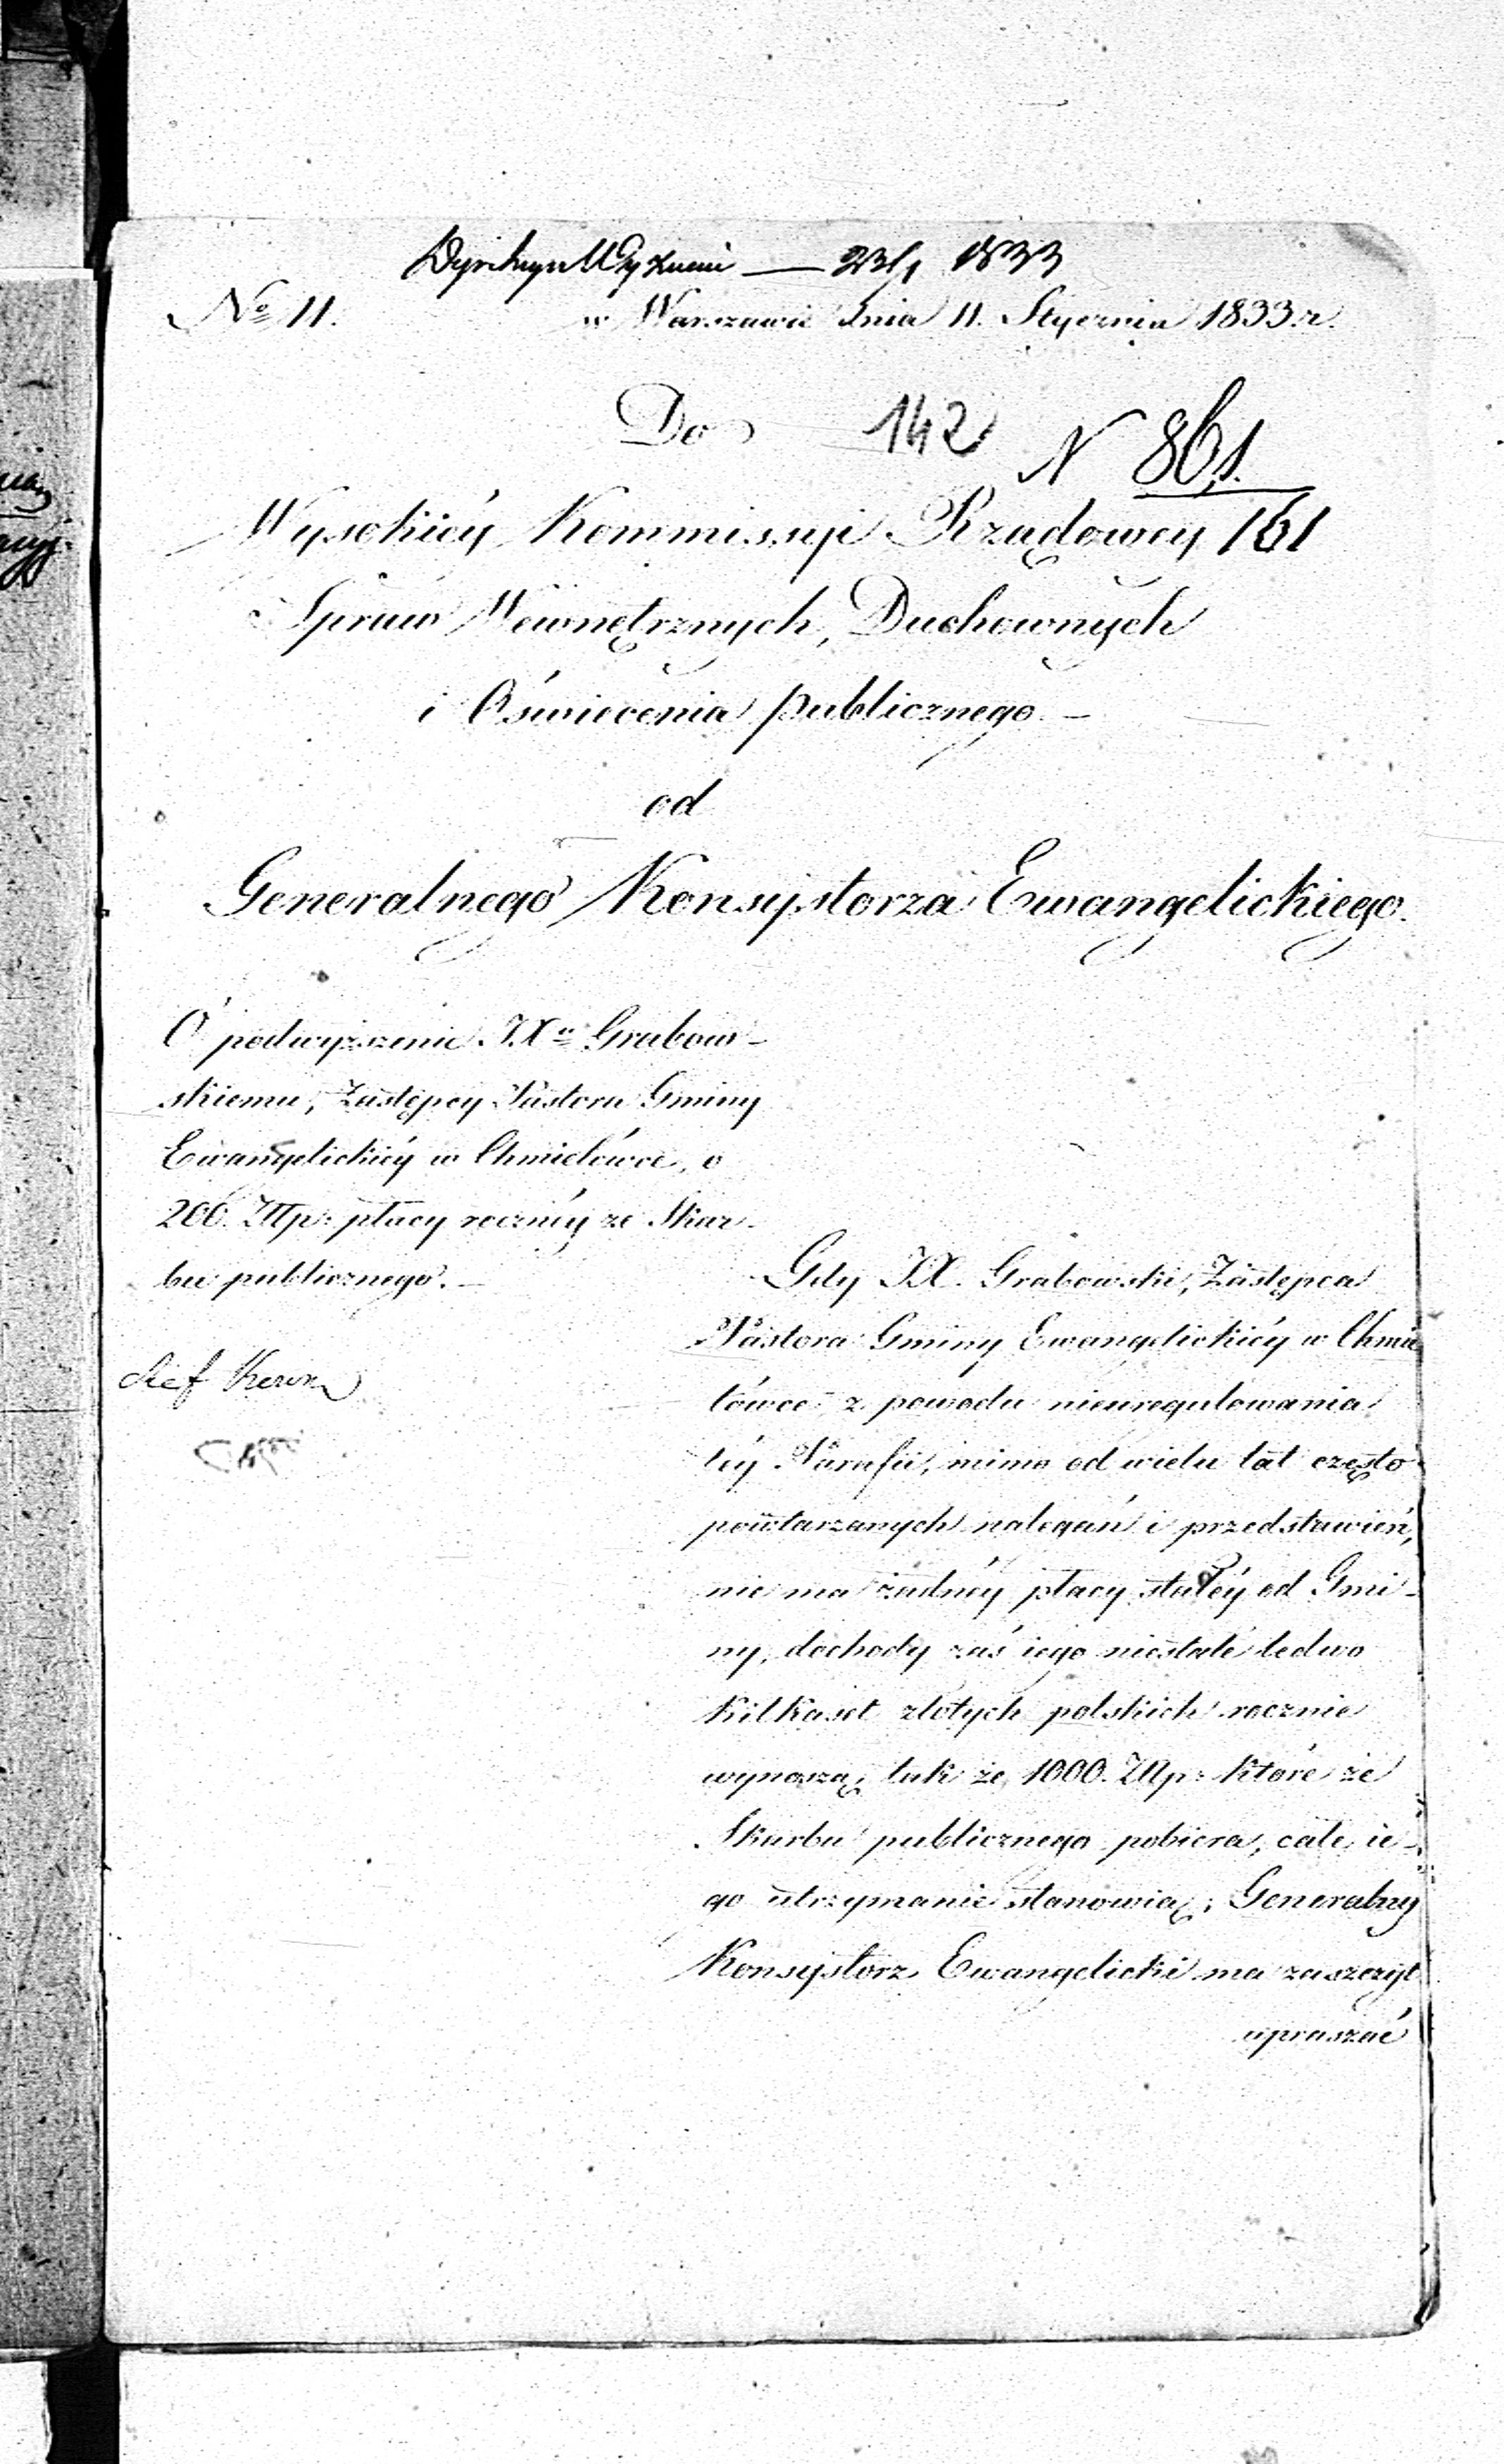 23/1 1833
No 11.
w Warszawie dnia 11. Stycznia 1833. r.
Do
142
N 861.
161
Wysokiéy Kommissyi Rządowey
Spraw Wewnętrznych, Duchownych
i Oświecenia publicznego. –
od
Generalnego Konsystorza Ewangelickiego.
O podwyższenie JXu Grabow-
skiemu, Zastępcy Pastora Gminy
Ewangelickiéy w Chmielówce, o
200. Złłp: płacy roczniéy ze Skar-
bu publicznego. –
Gdy JX. Grabowski, Zastępca
Pastora Gminy Ewangelickiéy w Chmie
lówce z powodu nieuregulowania
téy Parafii, mimo od wielu lat często
powtarzanych nalegań i przedstawień,
nie ma żadnéy płacy stałéy od Gmi-
ny, dochody zaś iego niestałe ledwo
kilkaset złotych polskich rocznie
wynoszą, tak że 1000. Złłp: które ze
Skarbu publicznego pobiera, całe ie-
go utrzymanie stanowią; Generalny
Konsystorz Ewangelicki ma zaszczyt
upraszać
Ref